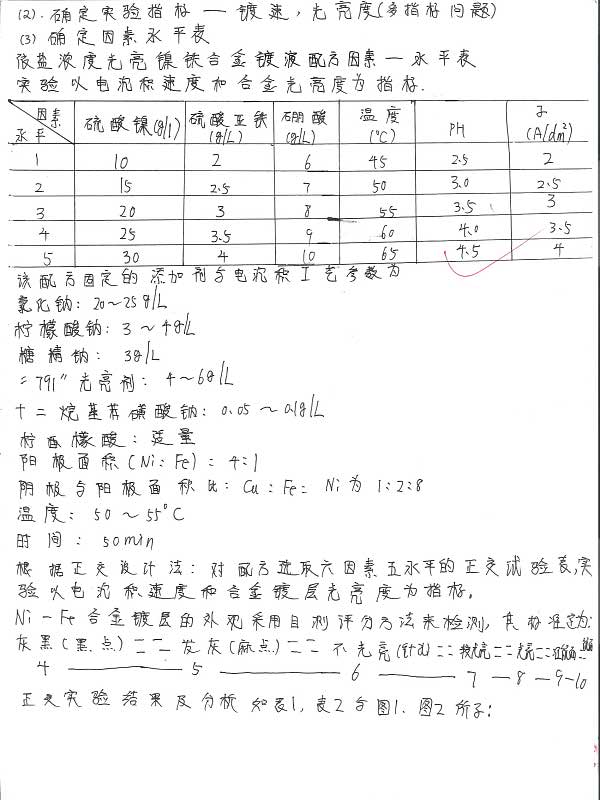 (2). 确定实验指标 — 镀速，光亮度(多指标问题)
(3) 确定因素水平表
低盐浓度光亮镍铁合金镀液配方因素一水平表
实验以电沉积速度和合金光亮度为指标.
因素 水平 硫酸镍(g/l) 硫酸亚铁(g/L) 硼酸(g/L) 温度(℃) PH (A/dm²)
1 10 2 6 45 2.5 2
2 15 2.5 7 50 3.0 2.5
3 20 3 8 55 3.5 3
4 25 3.5 9 60 4.0 3.5
5 30 4 10 65 4.5 4
该配方固定的添加剂与电沉积工艺参数为
氯化钠: 20~25g/L
柠檬酸钠: 3~4g/L
糖精钠: 3g/L
"791"光亮剂: 4~6g/L
十二烷基苯磺酸钠: 0.05~0.1g/L
柠檬酸: 适量
阳极面积(Ni:Fe)=4:1
阴极与阳极面积比: Cu:Fe:Ni为1:2:8
温度: 50~55℃
时间: 50min
根据正交设计法: 对配方选取六因素五水平的正交试验表,实
验以电沉积速度和合金镀层光亮度为指标.
Ni-Fe合金镀层的外观采用目测评分方法来检测, 其标准为:
灰黑(墨点)二二发灰(麻点)二二不光亮(针孔)二二较光亮二二光亮二二
4 — 5 — 6 — 7 — 8 — 9-10
正交实验结果及分析如表1, 表2与图1. 图2所示: